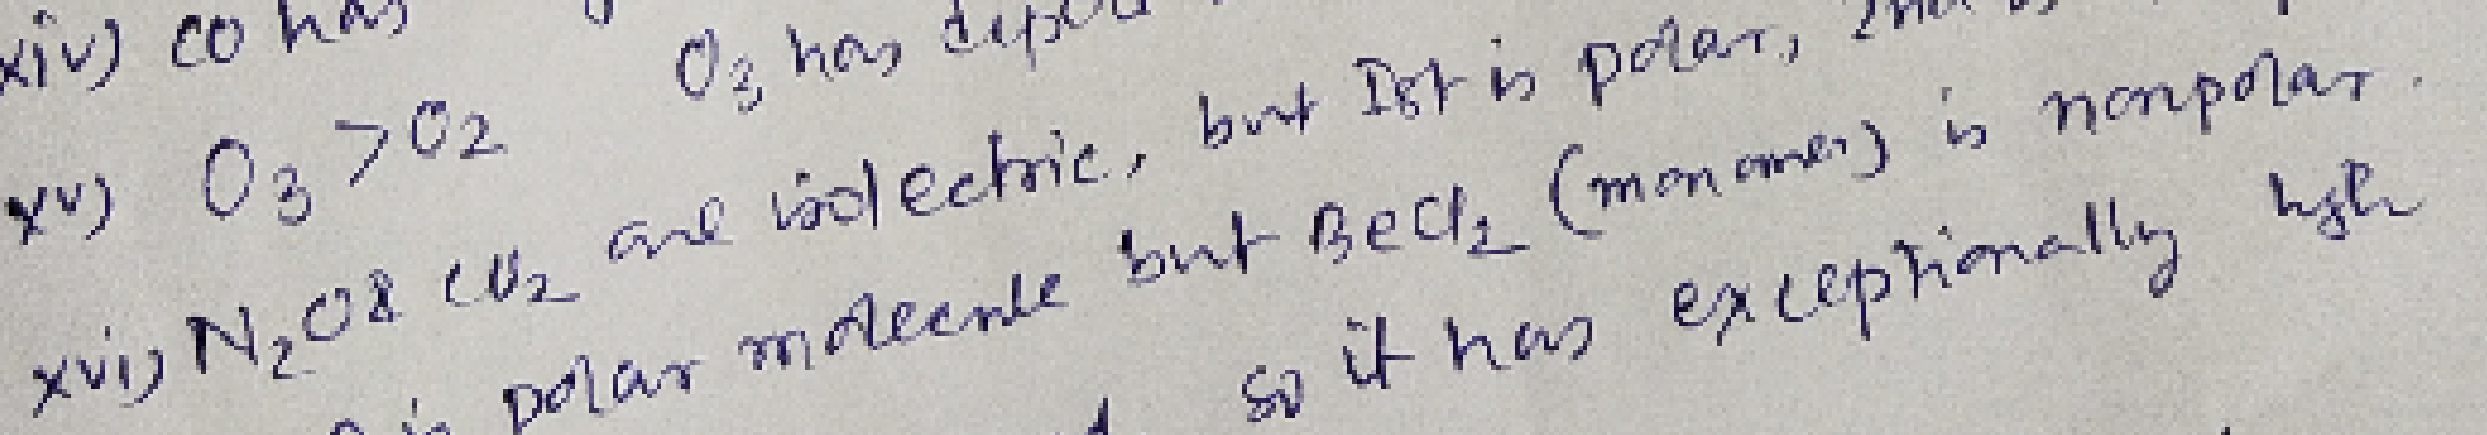 xiv) CO has
xv) O3 > O2 O3 has
xvi) N2O & CO2 are isolectric, but Ist is polar,
is polar molecule but BeCl2 (monomer) is nonpolar.
so it has exceptionally high